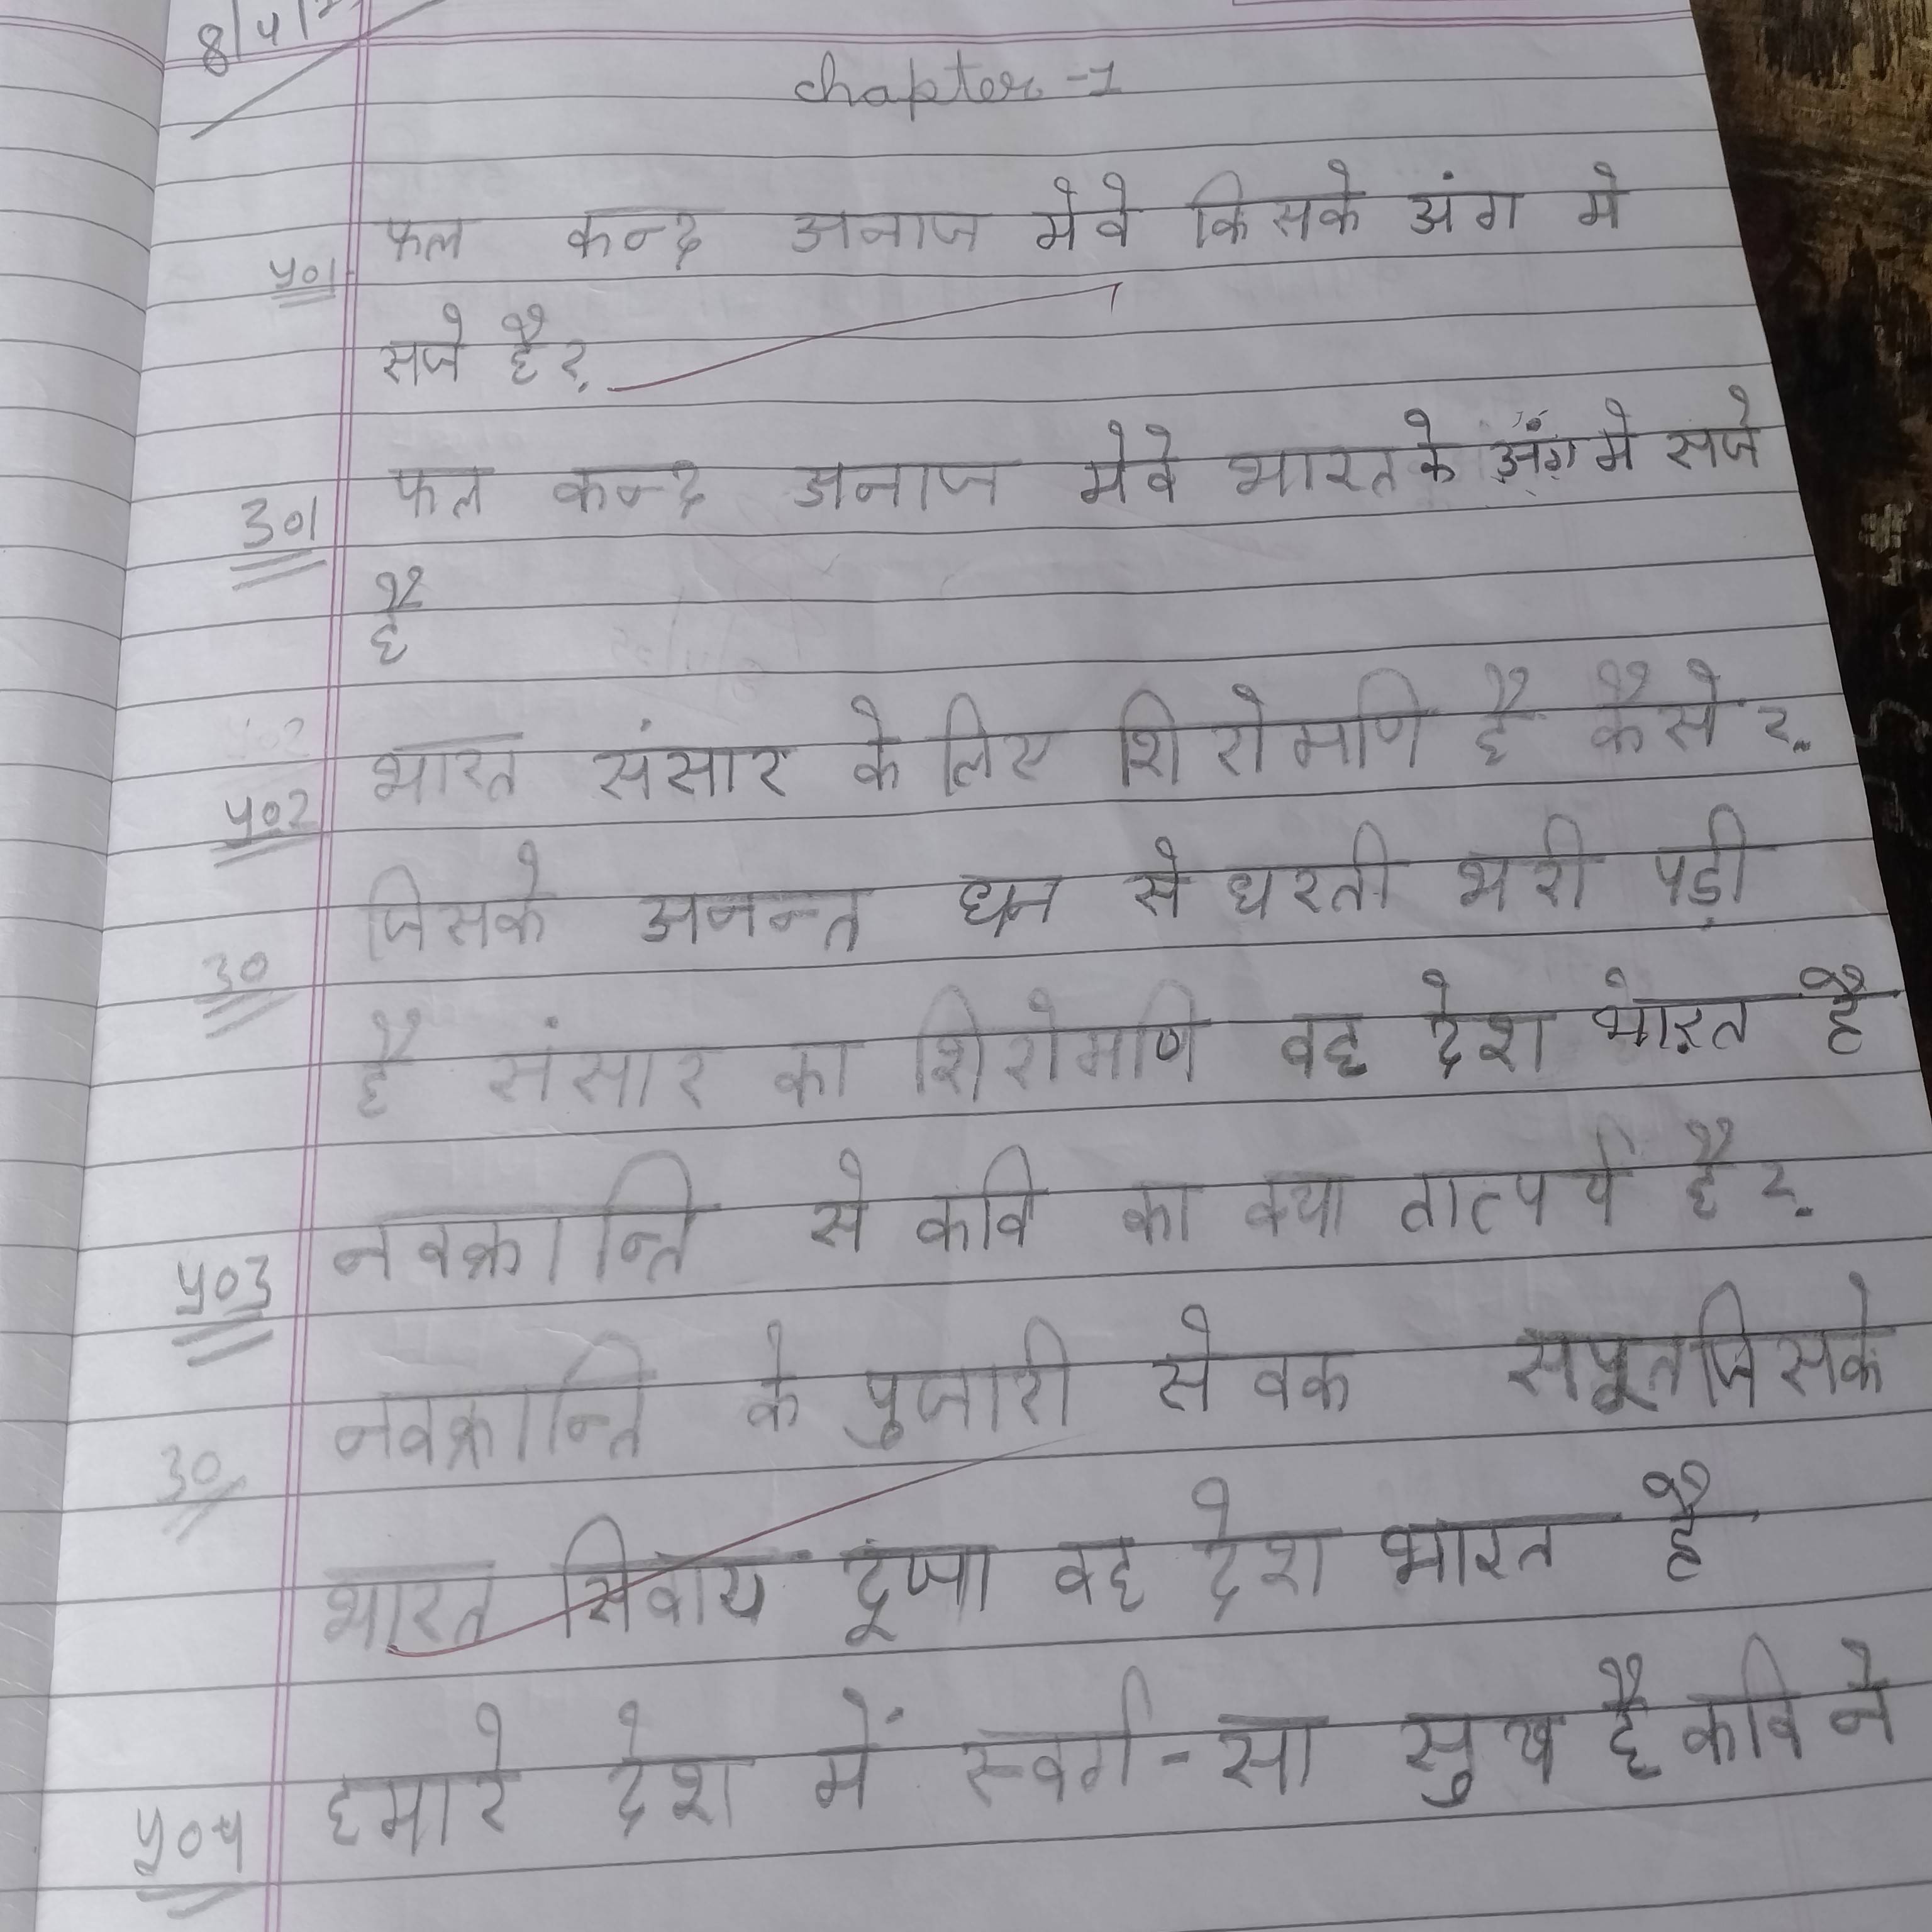 8/4/2
chapter -1
प्र०1 फल कन्द अनाज मेवे किसके अंग मे
सजे है?
उ०1 फल कन्द अनाज मेवे भारत के अंग मे सजे
है
प्र०2 भारत संसार के लिए शिरोमणि है कैसे?
उ० जिसके अनन्त धन से धरती भरी पड़ी
है संसार का शिरोमणि वह देश भारत है
प्र०3 नवक्रान्ति से कवि का क्या तात्पर्य है?
उ० नवक्रान्ति के पुजारी सेवक सपूत जिसके
भारत सिवाय दूंजा वह देश भारत है
प्र०4 हमारे देश में स्वर्ग-सा सुख है कवि ने